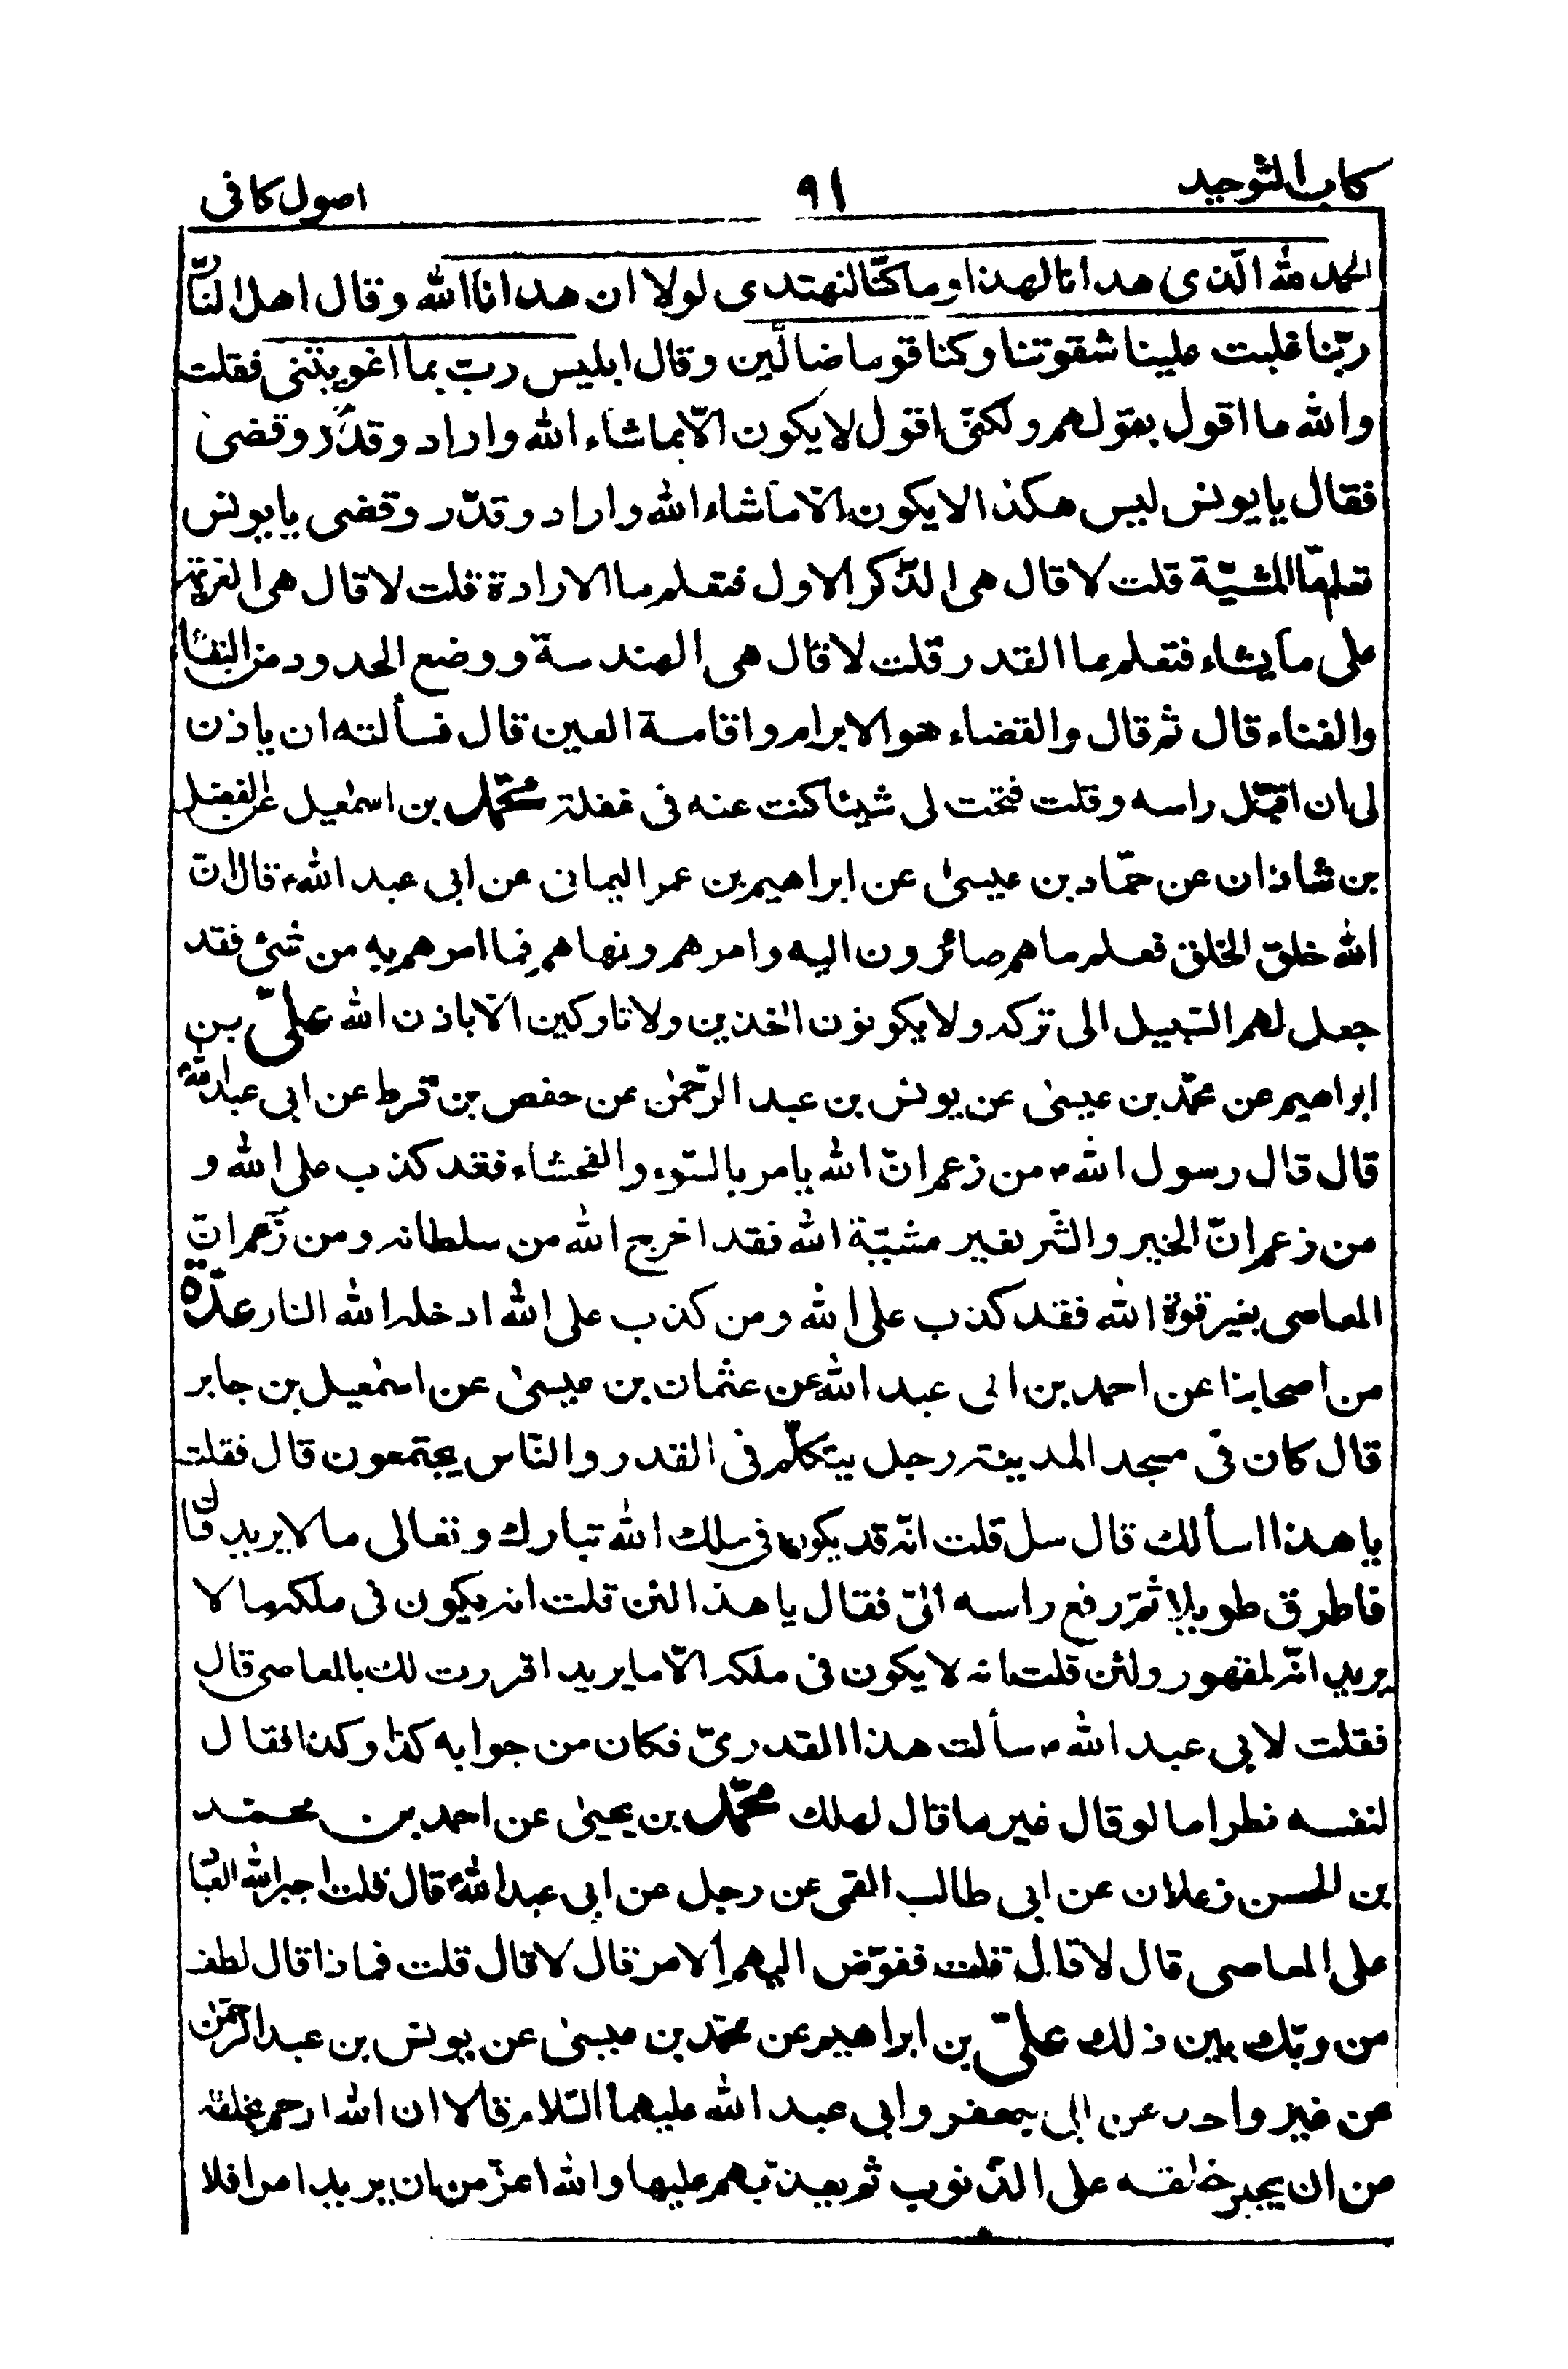 كتاب التوحيد
٩١
اصول كافى
الحمد لله الّذى هدانا لهذا وما كنّا لنهتدى لولا ان هدانا الله وقال اهل النّار
ربّنا غلبت علينا شقوتنا وكنا قوما ضالّين وقال ابليس ربّ بما اغويتنى فقلت
والله ما اقول بقولهم ولكنّى اقول لا يكون الّا بما شاء الله واراد وقدّر وقضى
فقال يا يونس ليس هكذا لا يكون الّا ما شاء الله واراد وقدّر وقضى يا يونس
تعلم ما المشيّة قلت لا قال هى الذّكر الاول فتعلم ما الارادة قلت لا قال هى العزيمة
على ما يشاء فتعلم ما القدر قلت لا قال هى الهندسة ووضع الحدود من البقاء
والفناء قال ثم قال والقضاء هو الابرام واقامة العين قال فسألته ان ياذن
لى ان اقبّل راسه وقلت فتحت لى شيئا كنت عنه فى غفلة محمّد بن اسمعيل عن الفضل
بن شاذان عن حمّاد بن عيسىٰ عن ابراهيم بن عمر اليمانى عن ابى عبد الله ع قال انّ
الله خلق الخلق فعلم ما هم صائرون اليه وامرهم ونهاهم فما امرهم به من شئ فقد
جعل لهم السّبيل الى تركه ولا يكونون اخذين ولا تاركين الّا باذن الله علىّ بن
ابراهيم عن محمّد بن عيسىٰ عن يونس بن عبد الرّحمٰن عن حفص بن قرط عن ابى عبد الله ع
قال قال رسول الله ص من زعم انّ الله يامر بالسّوء والفحشاء فقد كذب على الله و
من زعم انّ الخير والشّر بغير مشيّة الله فقد اخرج الله من سلطانه ومن زعم انّ
المعاصى بغير قوة الله فقد كذب على الله ومن كذب على الله ادخله الله النار عدّة
من اصحابنا عن احمد بن ابى عبد الله عن عثمان بن عيسىٰ عن اسمٰعيل بن جابر
قال كان فى مسجد المدينة رجل يتكلّم فى القدر والنّاس يجتمعون قال فقلت
يا هذا اسألك قال سل قلت انّه قد يكون فى ملك الله تبارك وتعالى ما لا يريد قال
فاطرق طويلا ثمّ رفع راسه الىّ فقال يا هذا لئن قلت انه يكون فى ملكه ما لا
يريد انّه لمقهور ولئن قلت انه لا يكون فى ملكه الّا ما يريد اقررت لك بالمعاصى قال
فقلت لابى عبد الله ع سألت هذا القدرىّ فكان من جوابه كذا وكذا فقال
لنفسه نظر اما لو قال غير ما قال لهلك محمّد بن يحيىٰ عن احمد بن محمّد
بن الحسن زعلان عن ابى طالب القمى عن رجل عن ابى عبد الله ع قال قلت اجبر الله العباد
على المعاصى قال لا قال قلت ففوّض اليهم الامر قال لا قال قلت فماذا قال لطف
من ربّك بين ذلك علىّ بن ابراهيم عن محمّد بن عيسىٰ عن يونس بن عبد الرّحمٰن
عن غير واحد عن ابى جعفر وابى عبد الله عليهما السّلام قالا ان الله ارحم بخلقه
من ان يجبر خلقه على الذّنوب ثم يعذّبهم عليها والله اعزّ من ان يريد امرا فلا